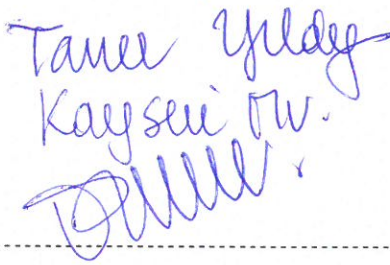 Taner Yıldız
Kayseri Mv.